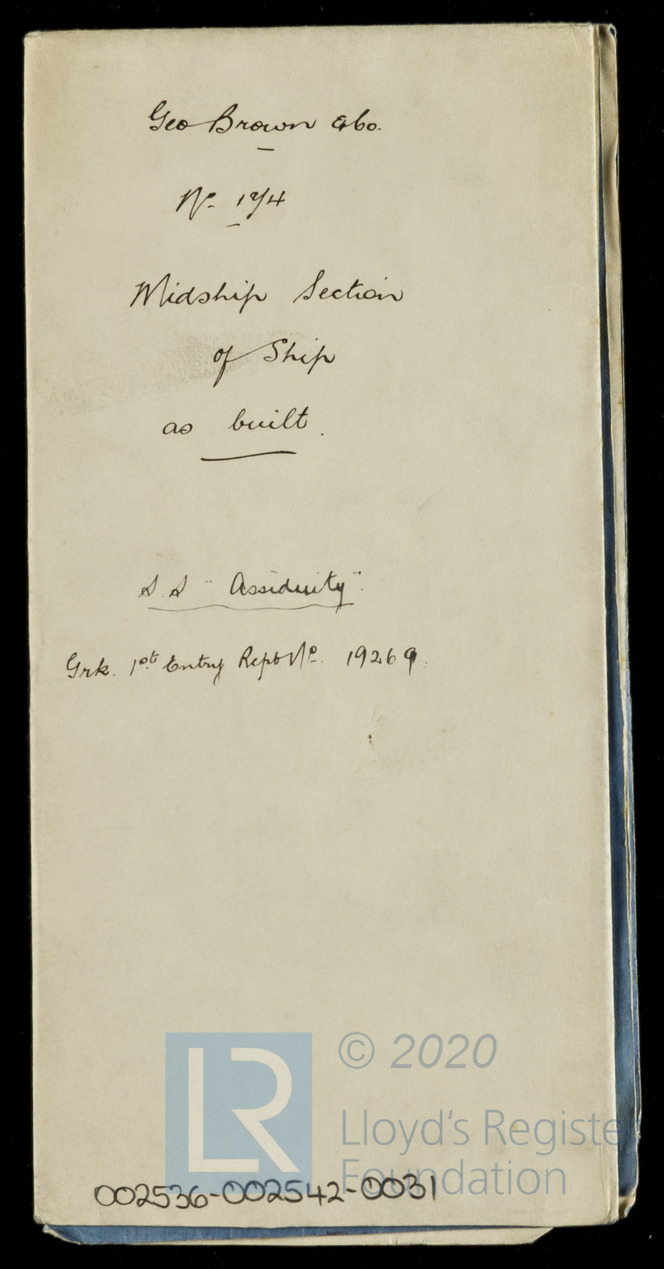 Geo Brown & Co.
No. 174
Midship Section
of Ship
as built.
S.S "Assiduity".
Grk. 1st Entry Rept No. 19269.
LR
© 2020
Lloyd's Registe
Foundation
002536-002542-0031